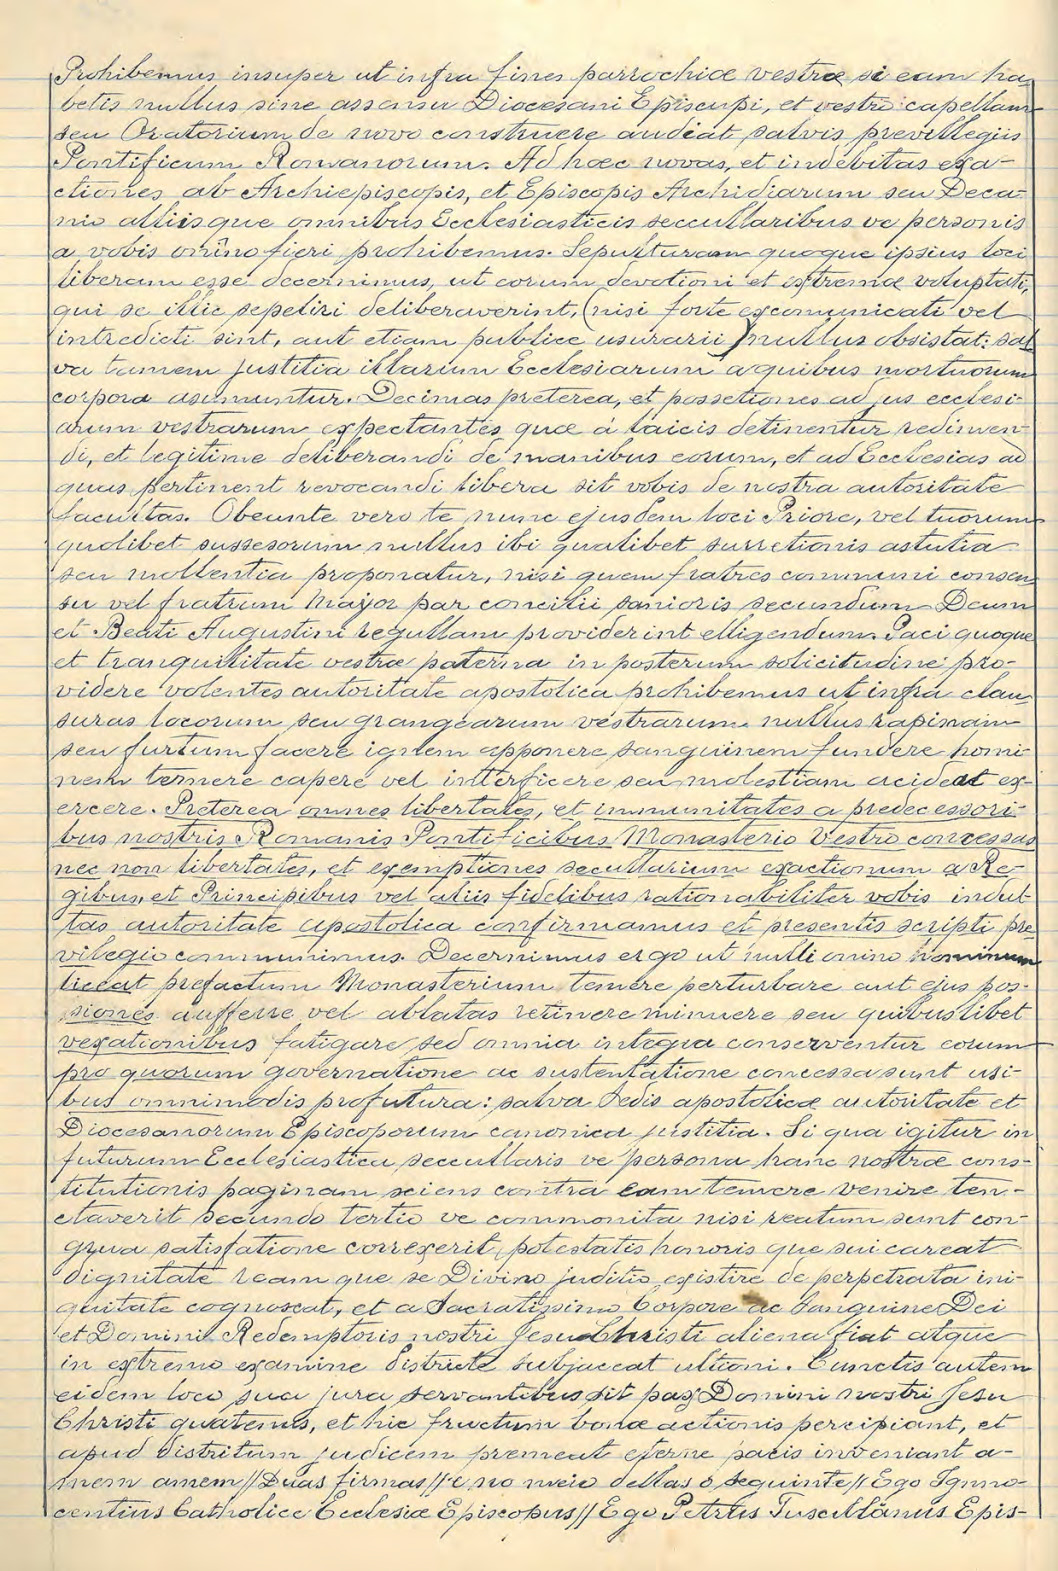 Prohibemus insuper ut infra fines parrochiæ vestræ si eam ha-
betis nullus sine assensu Diocesani Episcupi, et vestri capellam
seu Oratorium de novo construere audiat salvis previllegiis
Pontificum Romanorum. Ad hæc novas, et indebitas exa-
ctiones ab Archiepiscopis, et Episcopis Archidiarum seu Deca-
nis alliisque omnibus Ecclesiasticis seccullaribus ve personis
a vobis omĩno fieri prohibemus. Sepulturam quoque ipsius loci
liberam esse decernimus, ut eorum devotioni et extremæ voluptati,
qui se illic sepeliri deliberaverint, (nisi forte excomunicati vel
intredicti sint, aut etiam publice usurarii) nullus obsistat: sal
va tamem justitia illarium Ecclesiarum a quibus mortuorum
corpora asumuntur. Decimas preterea, et possetiones ad jus ecclesi-
arum vestrarum expectantes quæ á laicis detinentur redimen-
di, et legitime deliberandi de manibus eorum, et ad Ecclesias ad
quas pertinent revocandi libera sit vobis de nostra autoritate
facultas. Obeunte vero te nunc ejusdem loci Priore, vel tuorum
quolibet sussesorum nullus ibi qualibet surretionis astutia
seu mollentia proponatur, nisi quem fratres communi consen
su vel fratrum Major par concilii sanioris secundum Deum
et Beati Augustini regullam providerint elligendum. Paci quoque
et tranquilitate vestræ paterna in posterum solicitudine pro-
videre volentes autoritate apostolica prohibemus ut infra clau
suras locorum seu grangearum vestrarum nullus rapinam
seu furtum facere ignem apponere sanguinem fundere homi-
nem temere capere vel interficere seu molestiam acideat ex-
ercere. Preterea omnes libertates, et immunitates a predecessori-
bus nostris Romanis Pontificibus Monasterio Vestro concessas
nec non libertates, et exemptiones secullarium exactionum a Re-
gibus, et Principibus vel aliis fidelibus rationabiliter vobis indul
tas autoritate apostolica confirmamus et presentis scripti pre
vilegio communimus. Decernimus ergo ut nulli omino hominum
liceat prefactum Monasterium temere perturbare aut ejus pos-
siones aufferre vel ablatas retinere minuere seu quibuslibet
vexationibus fatigare sed omnia integra conserventur eorum
pro quorum governatione ac sustentatione concessa sunt usi-
bus omnimodis profutura: salva Sedis apostolicæ autoritate et
Diocesanorum Episcoporum canonica justitia. Si qua igitur in
futurum Ecclesiastica seccullaris ve persona hanc nostræ cons-
titutionis paginam sciens contra eam temere venire ten-
ctaverit secundo tertio ve commonita nisi reatum sunt con-
grua satisfatione correxerit, potestatis honoris que sui careat
dignitate ream que se Divino juditio existire de perpetrata ini-
quitate cognoscat, et a Sacratissimo Corpore ac Sanguine Dei
et Domini Redemptoris nostri Jesu Christi aliena fiat atque
in extremo examine districte subjaceat ultioni. Cunctis autem
eidem loco sua jura servantibus sit pax Domini nostri Jesu
Christi quatenus, et hic fructum bonæ actionis percipiant, et
apud distritum judicem premeut eterne pacis inveniant a-
mem amem // Duas firmas // e no meio dellas o seguinte // Ego Ignno-
centius Catholice Ecclesiæ Episcopus // Ego Petrus Tuscullãnus Epis-